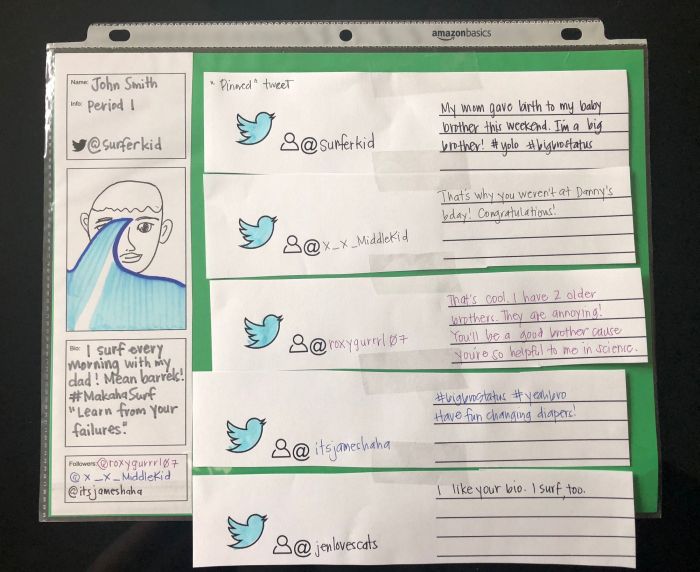 amazonbasics
Name: John Smith
Info: Period 1
@surferkid
Bio: I surf every
morning with my
dad! Mean barrels!
#MakahaSurf
"Learn from your
failures."
Followers: @roxygurrrl07
@x_x_MiddleKid
@itsjameshaha
"Pinned" tweet
@surferkid
My mom gave birth to my baby
brother this weekend. I'm a big
brother! #yolo #bigbrostatus
@x_x_MiddleKid
That's why you weren't at Danny's
bday! Congratulations!
@roxygurrrl07
That's cool. I have 2 older
brothers. They are annoying!
You'll be a good brother cause
you're so helpful to me in science.
@itsjameshaha
#bigbrostatus #yeahbro
Have fun changing diapers!
@jenlovescats
I like your bio. I surf, too.